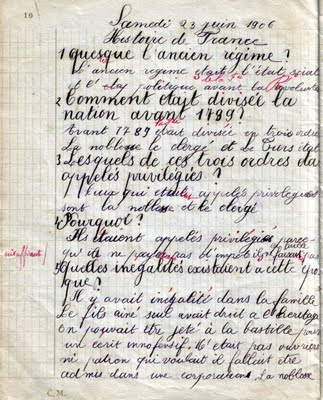 10
Samedi 23 juin 1906
Histoire de France
1 quesque l'ancien régime?
L'ancien régime était l'état social
et l'état politique avant la Révolution
2 Comment etayt divisée la
nation avant 1789?
Avant 1789 était divisée en trois ordre
La noblesse le clergé et le Tiers état
3 Lesquels de ces trois ordres
appelés privilégies?
Ceux qui etait appelés privilegies
sont la noblesse et le clergé
4 Pourquoi?
Ils étaient appelés privilégiés parce
qu'ils ne payaient pas d'impôts
insuffisant/
5 Quelles inégalités existaient a cette épo
que?
Il y avait inégalité dans la famille
Le fils ainé seul avait droit a l'heritage
On pouvait être jeté à la bastille pour
un ecrit innofensif. N'etait pas ouvriers
ni patron qui voulait il fallait être
admis dans une corporation La noblesse
C.M.